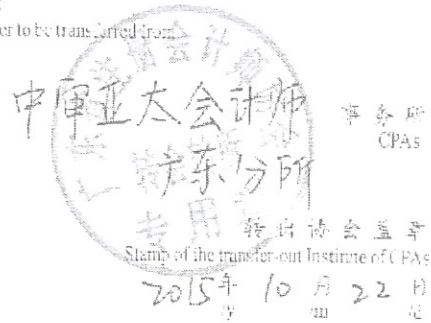 er to be transferred from
中审亚太会计师 事务所
CPAs
广东分所
专用
转出协会盖章
Stamp of the transfer-out Institute of CPAs
2015年 10月 22日